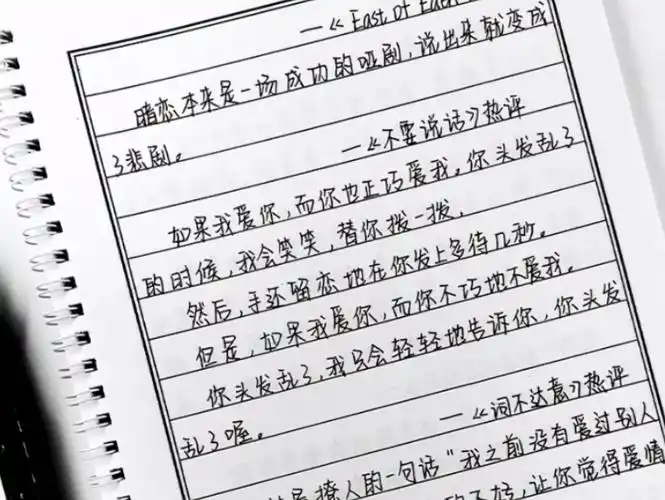 —《East of Eden
暗恋本来是一场成功的哑剧，说出来就变成
了悲剧。
—《不要说话》热评
如果我爱你，而你也正巧爱我。你头发乱了
的时候，我会笑笑，替你拨一拨，
然后，手还留恋地在你发上多待几秒。
但是，如果我爱你，而你不巧地不爱我。
你头发乱了，我只会轻轻地告诉你，你头发
乱了喔。
—《词不达意》热评
最撩人的一句话“我之前没有爱过别人
不好，让你觉得爱情